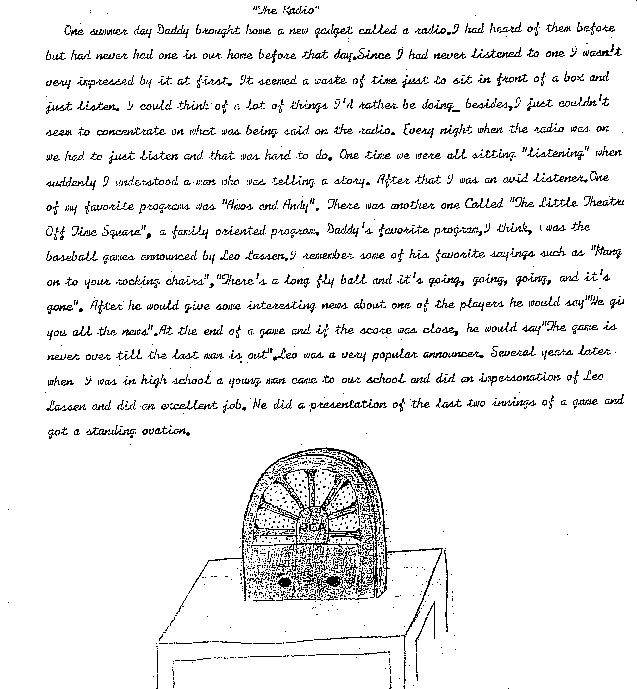 "The Radio"
One summer day Daddy brought home a new gadget called a radio. I had heard of them before
but had never had one in our home before that day. Since I had never listened to one I wasn't
very impressed by it at first. It seemed a waste of time just to sit in front of a box and
just listen. I could think of a lot of things I'd rather be doing besides, I just couldn't
seem to concentrate on what was being said on the radio. Every night when the radio was on
we had to just listen and that was hard to do. One time we were all sitting "listening" when
suddenly I understood a man who was telling a story. After that I was an avid listener. One
of my favorite programs was "Amos and Andy". There was another one Called "The Little Theatre
Off Time Square", a family oriented program. Daddy's favorite program, I think, was the
baseball games announced by Leo Lassen. I remember some of his favorite sayings such as "Hang
on to your rocking chairs", "There's a long fly ball and it's going, going, going, and it's
gone". After he would give some interesting news about one of the players he would say "We gi
you all the news". At the end of a game and if the score was close, he would say "The game is
never over till the last man is out". Leo was a very popular announcer. Several years later
when I was in high school a young man came to our school and did an impersonation of Leo
Lassen and did an excellent job. He did a presentation of the last two innings of a game and
got a standing ovation.
RCA